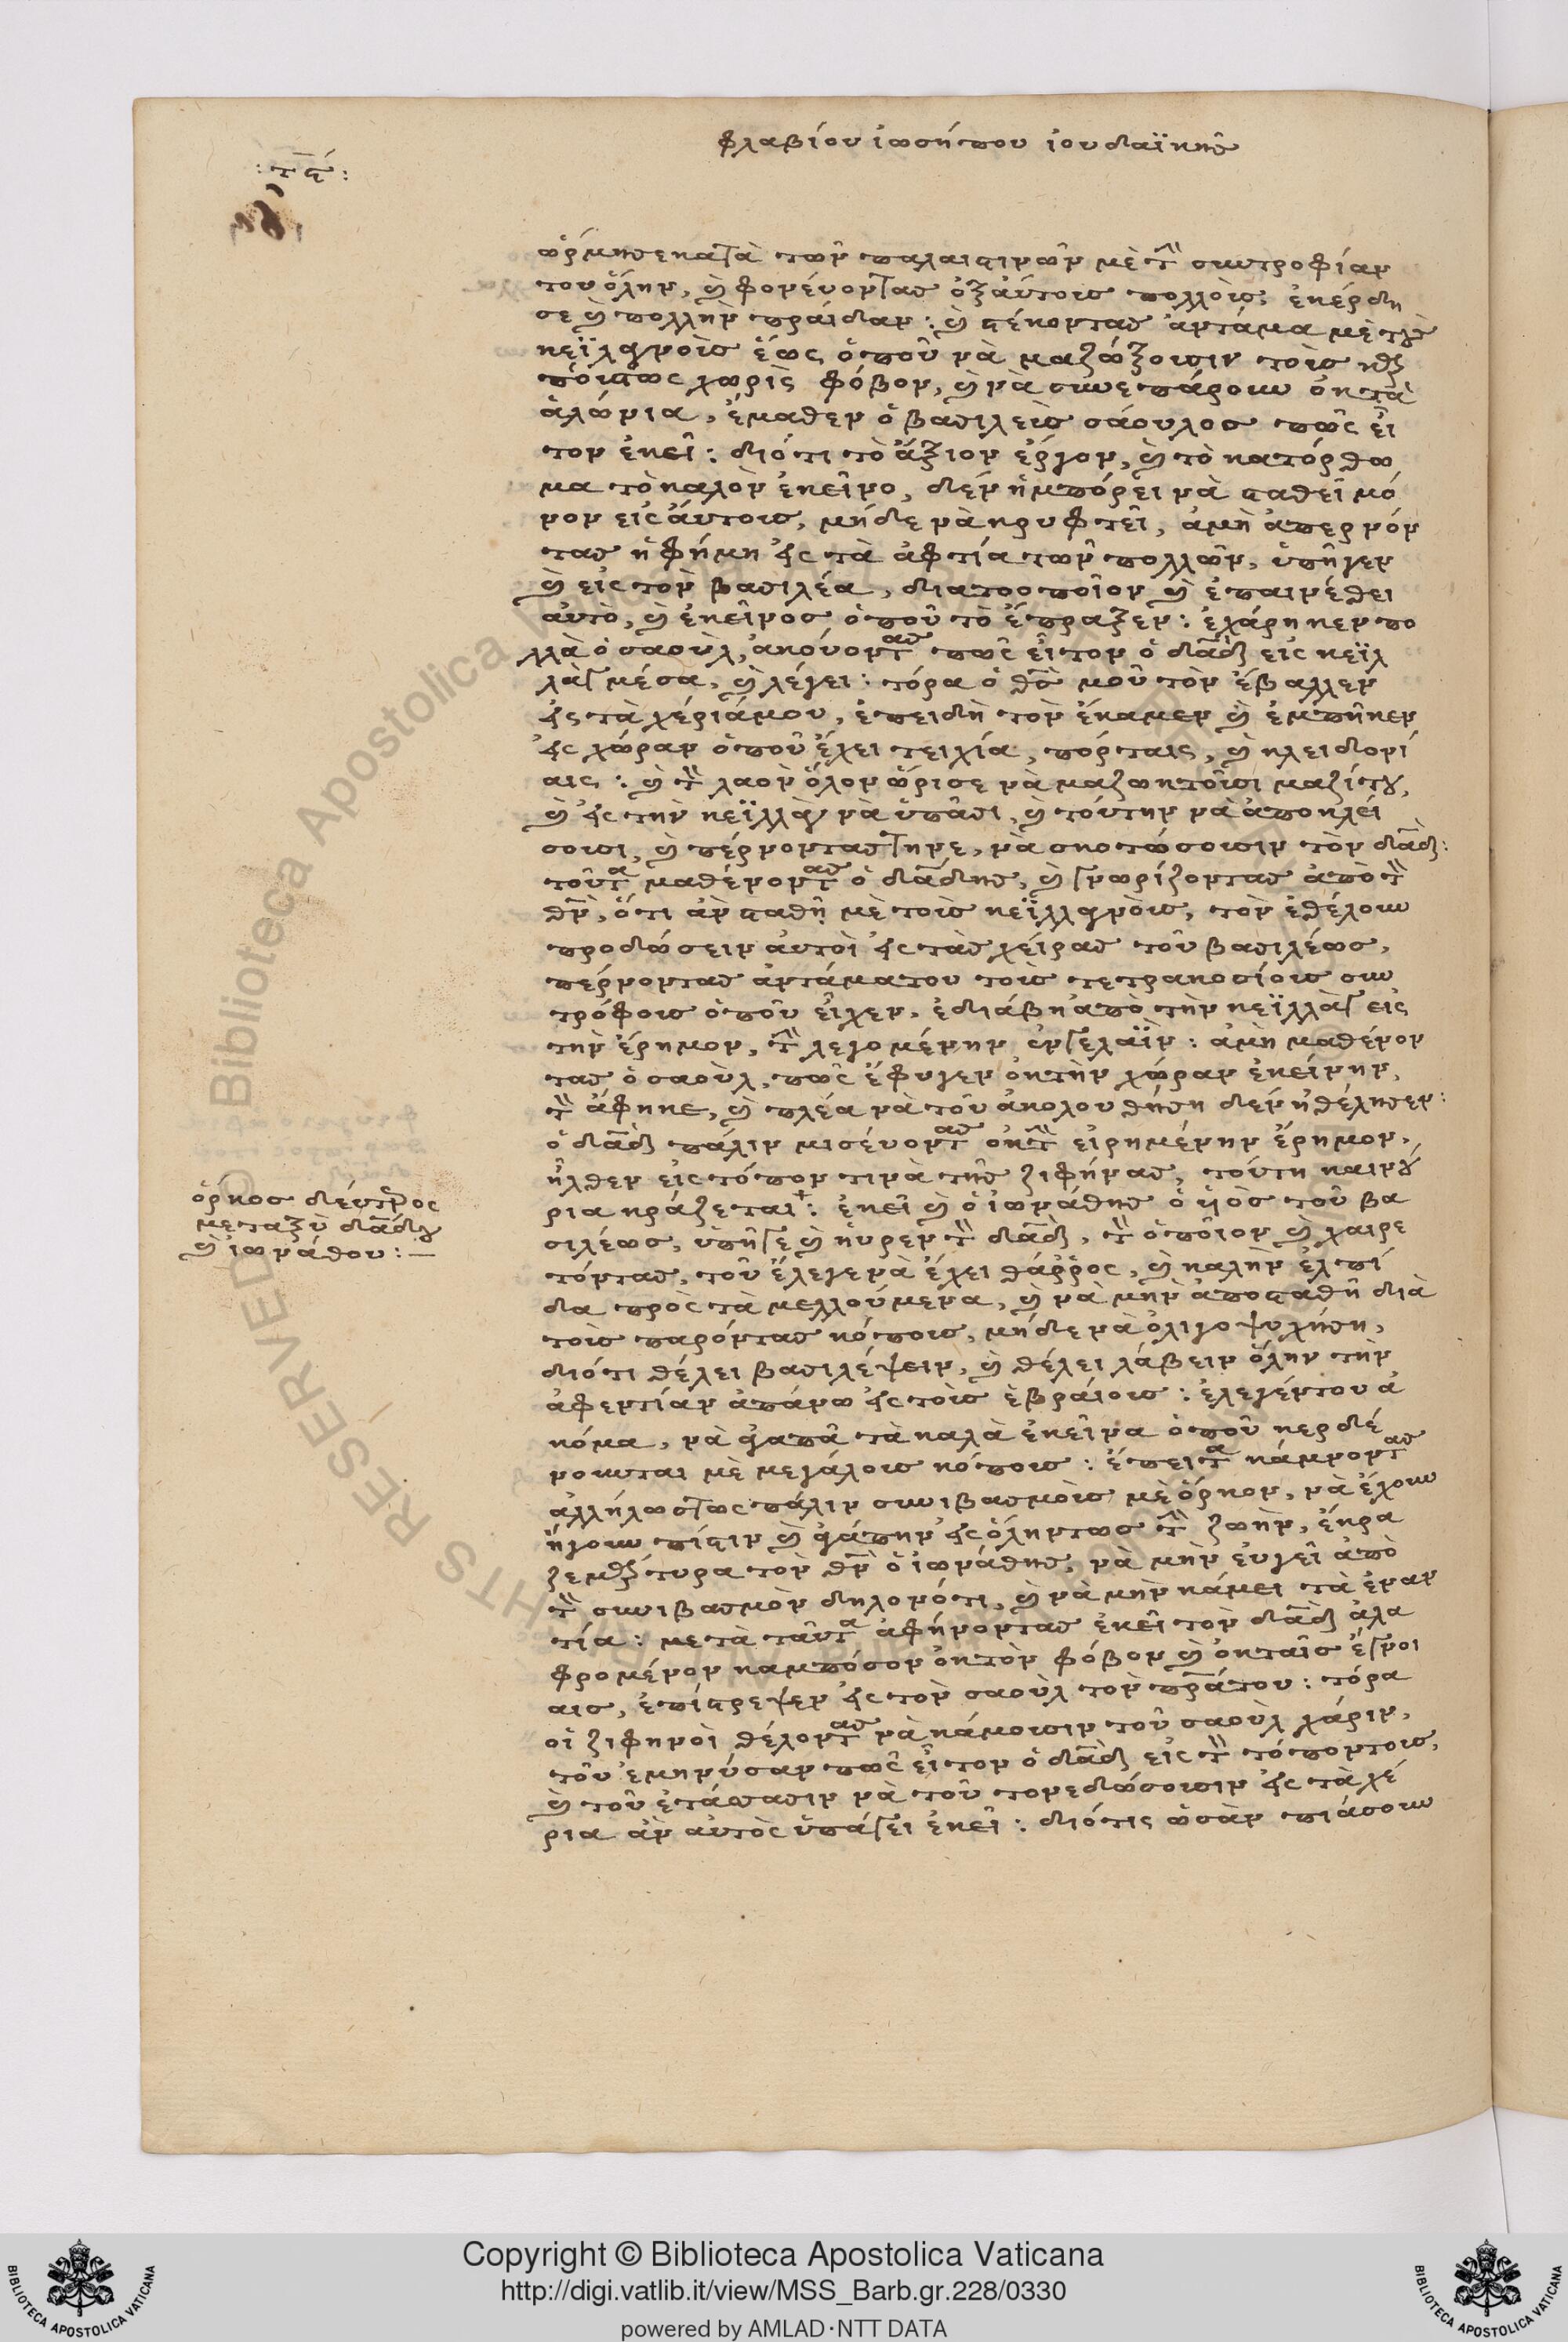 φλαβίου ἰωσήπου ἰουδαϊκῆς
: τϛ´ :
ὥρμησε κατὰ τῶν παλαιστινῶν μὲ τὴν συντροφίαν
του ὅλην, καὶ φονεύοντας ὀξ αὐτοὺς πολλοὺς, ἐκέρδη
σε καὶ πολλὴν πράιδαν : καὶ στέκοντας ἀντάμα μὲ τοὺς
κεϊλανοὺς ἕως ὁποῦ νὰ μαζώξουσιν τοὺς καρ
ποὺςτως χωρὶς φόβον, καὶ νὰ συνεπάρουν ὀκ τὰ
ἁλώνια, ἔμαθεν ὁ βασιλεὺς σάουλος πῶς εἶ
τον ἐκεῖ : διότι τὸ ἄξιον ἔργον, καὶ τὸ κατόρθω
μα τὸ καλὸν ἐκεῖνο, δὲν ἠμπόρει νὰ σταθεῖ μό
νον εἰς αὐτοὺς, μήδε νὰ κρυφτεῖ, ἀμὴ ἀπερνόν
τας ἡ φήμη εἰς τὰ ἀφτία τῶν πολλῶν, ὑπῆγεν
καὶ εἰς τὸν βασιλέα, διατοοποῖον καὶ ἐπαινέθει
αὐτὸ, καὶ ἐκεῖνος ὁποῦ τὸ ἔπραξεν : ἐχάρηκεν πο
λλὰ ὁ σαοὺλ, ἀκούοντας πῶς εἶτον ὁ δαδ εἰς κεϊλ
λὰν μέσα, καὶ λέγει : τόρα ὁ θς μοῦ τὸν ἔβαλλεν
εἰς τὰ χέριάμου, ἐπειδὴ τὸν ἔκαμεν καὶ ἐμπῆκεν
εἰς χώραν ὁποῦ ἔχει τειχία, πόρταις, καὶ κλειδονί
αις : καὶ τὸν λαὸν ὅλον ὥρισε νὰ μαζωκτοῦσι μαζίτου,
καὶ εἰς τὴν κεϊλλὰν νὰ ὑπᾶσι, καὶ τούτην νὰ ἀποκλεί
σουσι, καὶ πέρνοντας τηνε, νὰ σκοτώσουσιν τὸν δαδ :
τοῦτα μαθένοντας ὁ δαδης, καὶ γνωρίζοντας ἀπὸ τὸν
θν, ὅτι ἂν σταθῆ μὲ τοὺς κεϊλλανοὺς, τὸν ἐθέλουν
προδώσειν αὐτοὶ εἰς τὰς χείρας τοῦ βασιλέως,
πέρνοντας ἀντάματου τοὺς τετρακοσίους συν
τρόφους ὁποῦ εἶχεν, ἐδιάβη ἀπὸ τὴν κεϊλλὰν εἰς
τὴν ἔρημον, τὴν λεγομένην ἐνγελαΐν : ἀμὴ μαθένον
τας ὁ σαοὺλ, πῶς ἔφυγεν ὀκ τὴν χώραν ἐκείνην,
τὸν ἄφηκε, καὶ πλέα νὰ τοῦ ἀκολουθήση δὲν ἠθέλησεν :
ὁ δαδ πάλιν μισέυοντας ὀκ τὴν εἰρημένην ἔρημον,
ἦλθεν εἰς τόπον τινὰ τῆς ζιφήνας, τούτη καινού
ρια κράζεται : ἐκεῖ καὶ ὁ ἰωνάθης ὁ ὑιὸς τοῦ βα
σιλέως, ὑπῆγε καὶ ηὗρεν τὸν δαδ, τὸν ὁποῖον καὶ χαιρε
τόντας, τοῦ ἔλεγε νὰ ἔχει θάῤῥος, καὶ καλὴν ἐλπί
δα πρὸς τὰ μελλούμενα, καὶ νὰ μὴν ἀποσταθῆ διὰ
τοὺς παρόντας κόπους, μήδε νὰ ὀλιγοψυχήση,
διότι θέλει βασιλέψειν, καὶ θέλει λάβειν ὅλην τὴν
ἀφεντίαν ἀπάνω εἰς τοὺς ἑβραίους : ἐλεγέντου ἀ
κόμα, νὰ ἀγαπᾶ τὰ καλὰ ἐκεῖνα ὁποῦ κερδέ
νουνται μὲ μεγάλους κόπους : ἔπειτα κάμνοντας
ἀλλήλωςτως πάλιν συνιβασμοὺς μὲ ὅρκον, νὰ ἔχουν
ἤγουν πίστιν καὶ ἀγάπην εἰς ὅληντως τὴν ζωὴν, ἔκρα
ζε μάρτυρα τὸν θν ὁ ἰωνάθης, νὰ μὴν εὐγεῖ ἀπὸ
τὸν συνιβασμὸν δηλονότι, καὶ νὰ μὴν κάμει τὰ ἐναν
τία : μετὰ ταῦτα ἀφήνοντας ἐκεῖ τὸν δαδ ἀλα
φρομένον καμπόσον ὀκ τὸν φόβον καὶ ὀκ ταῖς ἔγνοι
αις, ἐπίστρεψεν εἰς τὸν σαοὺλ τὸν πραάτου : τόρα
οἱ ζιφηνοὶ θέλοντας νὰ κάμουσιν τοῦ σαοὺλ χάριν,
τοῦ ἐμηνύσαν πῶς εἶτον ὁ δαδ εἰς τὸν τόποντους,
καὶ τοῦ ἐτάσσασιν νὰ τοῦ τονεδώσουσιν εἰς τὰ χέ
ρια ἂν αὐτὸς ὑπάγει ἐκεῖ : διότις ὡσὰν πιάσουν
ὅρκος δεύτερος
μεταξὺ δαδου
καὶ ἰωνάθου : —
Copyright © Biblioteca Apostolica Vaticana
http://digi.vatlib.it/view/MSS_Barb.gr.228/0330
powered by AMLAD·NTT DATA